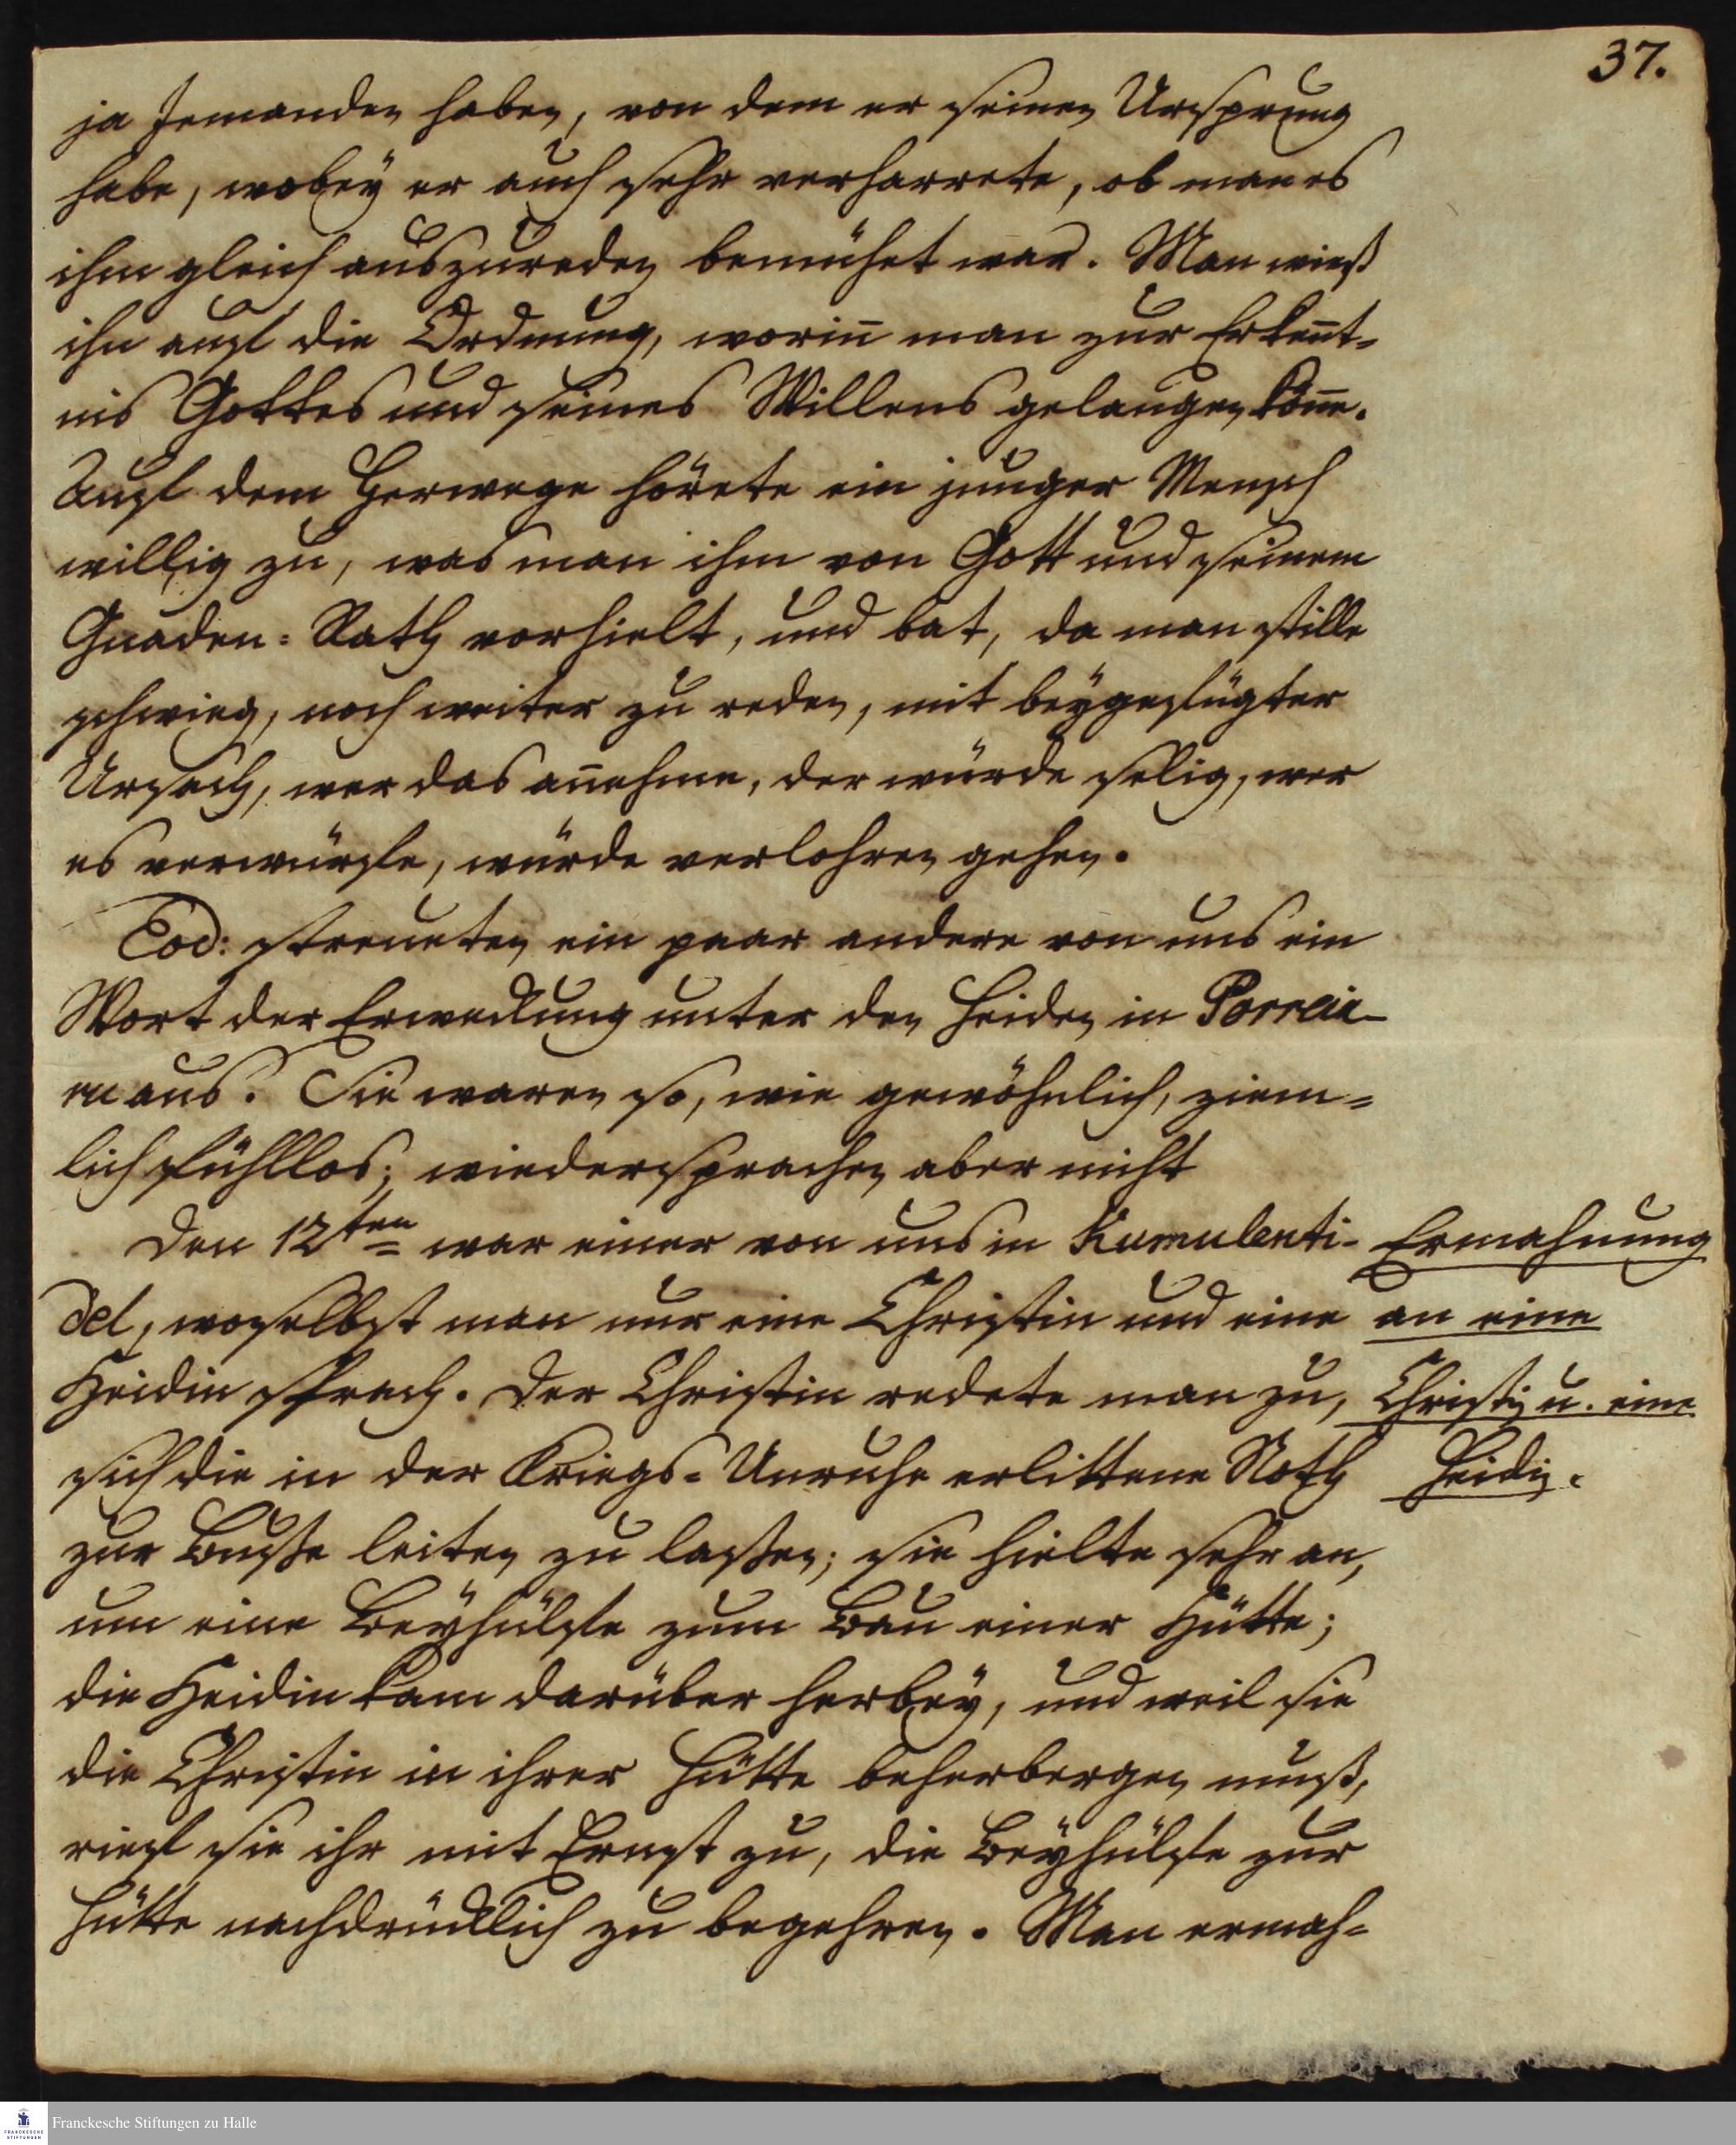 37.
ja Jemanden haben, von dem er seinen Ursprung
habe, wobey er auch sehr verharrete, ob man es
ihm gleich auszureden bemühet war. Man wieß
ihn auf die Ordnung, worin̄ man zur Erken̄t-
nis Gottes und seines Willens gelangen kön̄e.
Auf dem Herwege hörete ein junger Mensch
willig zu, was man ihm von Gott und seinem
Gnaden-Rath vorhielt, und bat, da man stille
schwieg, noch weiter zu reden, mit beygefügter
Ursach, wer das an̄ehme, der würde selig, wer
es verwürfe, würde verlohren gehen.
Eod: streueten ein paar andere von uns ein
Wort der Erweckung unter den Heiden in Porreia-
ru aus. Sie waren so, wie gewöhnlich, ziem-
lich fühllos; wiedersprachen aber nicht
Den 12ten war einer von uns in Kumulenti-
del, woselbst man nur eine Christin und eine
Heidin sprach. Der Christin redete man zu,
sich die in der Kriegs-Unruhe erlittene Noth
zur Busse leiten zu lassen; sie hielte sehr an,
um eine Beyhülfe zum Bau einer Hütte;
die Heidin kam darüber herbey, und weil sie
die Christin in ihrer Hütte beherbergen muß,
rief sie ihr mit Ernst zu, die Beyhülfe zur
Hütte nachdrücklich zu begehren. Man ermah-
Ermahnung
an eine
Christin u. eine
Heidin.
Franckesche Stiftungen zu Halle
FRANCKESCHE
STIFTUNGEN